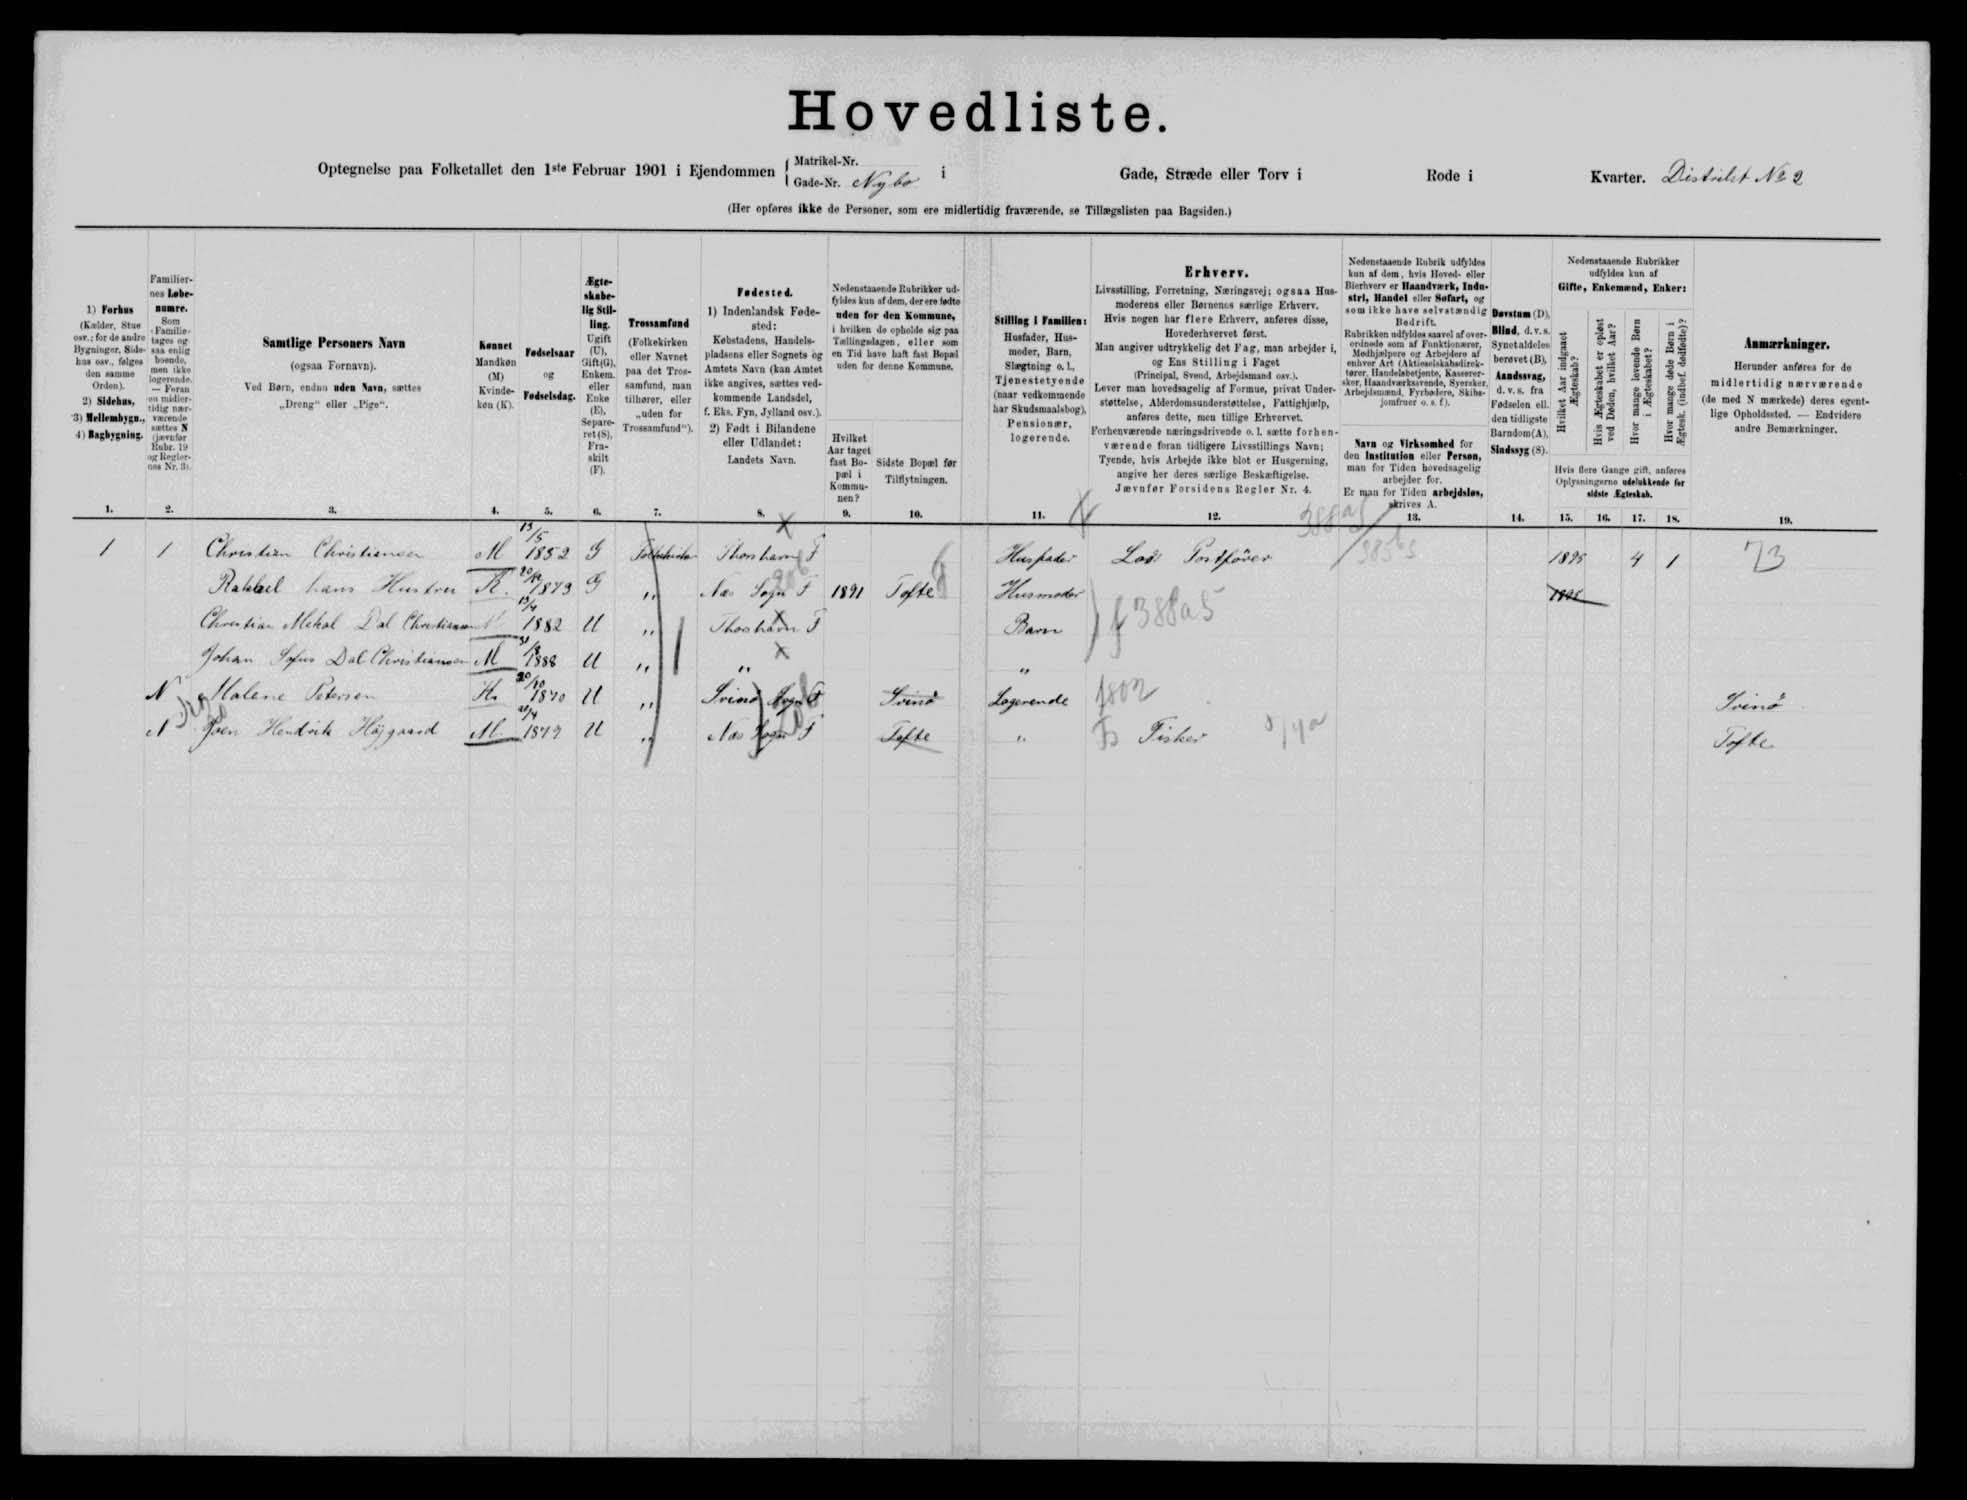 Hovedliste.
Optegnelse paa Folketallet den 1ste Februar 1901 i Ejendommen { Matrikel-Nr. Gade-Nr. Nybo i Gade, Stræde eller Torv i Rode i Kvarter. Distrikt No 2
(Her opføres ikke de Personer, som ere midlertidig fraværende, se Tillægslisten paa Bagsiden.)
1) Forhus
(Kælder, Stue
osv.; for de andre
Bygninger, Side-
hus osv., følges
den samme
Orden).
2) Sidehus,
3) Mellembygn.,
4) Bagbygning.
1.
Familier-
nes Løbe-
numre.
Som
„Familie“
tages og-
saa enlig
boende,
men ikke
logerende.
— Foran
en midler-
tidig nær-
værende
sættes N
(jævnfør
Rubr. 19
og Regler-
nes Nr. 3).
2.
Samtlige Personers Navn
(ogsaa Fornavn).
Ved Børn, endnu uden Navn, sættes
„Dreng“ eller „Pige“.
3.
Kønnet
Mandkøn
(M)
Kvinde-
køn (K).
4.
Fødselsaar
og
Fødselsdag.
5.
Ægte-
skabe-
lig Stil-
ling.
Ugift
(U),
Gift(G),
Enkem.
eller
Enke
(E),
Separe-
ret (S),
Fra-
skilt
(F).
6.
Trossamfund
(Folkekirken
eller Navnet
paa det Tros-
samfund, man
tilhører, eller
„uden for
Trossamfund“).
7.
Fødested.
1) Indenlandsk Føde-
sted:
Købstadens, Handels-
pladsens eller Sognets og
Amtets Navn (kan Amtet
ikke angives, sættes ved-
kommende Landsdel,
f. Eks. Fyn, Jylland osv.).
2) Født i Bilandene
eller Udlandet:
Landets Navn.
8.
Nedenstaaende Rubrikker ud-
fyldes kun af dem, der ere fødte
uden for den Kommune,
i hvilken de opholde sig paa
Tællingsdagen, eller som
en Tid have haft fast Bopæl
uden for denne Kommune.
Hvilket
Aar taget
fast Bo-
pæl i
Kommu-
nen?
9.
Sidste Bopæl før
Tilflytningen.
10.
Stilling i Familien:
Husfader, Hus-
moder, Barn,
Slægtning o. l.,
Tjenestetyende
(naar vedkommende
har Skudsmaalsbog),
Pensionær,
logerende.
11.
Erhverv.
Livsstilling, Forretning, Næringsvej; ogsaa Hus-
moderens eller Børnenes særlige Erhverv.
Hvis nogen har flere Erhverv, anføres disse,
Hovederhvervet først.
Man angiver udtrykkelig det Fag, man arbejder i,
og Ens Stilling i Faget
(Principal, Svend, Arbejdsmand osv.).
Lever man hovedsagelig af Formue, privat Under-
støttelse, Alderdomsunderstøttelse, Fattighjælp,
anføres dette, men tillige Erhvervet.
Forhenværende næringsdrivende o. l. sætte forhen-
værende foran tidligere Livsstillings Navn;
Tyende, hvis Arbejde ikke blot er Husgerning,
angive her deres særlige Beskæftigelse.
Jævnfør Forsidens Regler Nr. 4.
12.
Nedenstaaende Rubrik udfyldes
kun af dem, hvis Hoved- eller
Bierhverv er Haandværk, Indu-
stri, Handel eller Søfart, og
som ikke have selvstændig
Bedrift.
Rubrikken udfyldes saavel af over-
ordnede som af Funktionærer,
Medhjælpere og Arbejdere af
enhver Art (Aktieselskabsdirek-
tører, Handelsbetjente, Kasserer-
sker, Haandværkssvende, Syersker,
Arbejdsmænd, Fyrbødere, Skibs-
jomfruer o. s. f.).
Navn og Virksomhed for
den Institution eller Person,
man for Tiden hovedsagelig
arbejder for.
Er man for Tiden arbejdsløs,
skrives A.
13.
Døvstum (D),
Blind, d. v. s.
Synet aldeles
berøvet (B),
Aandssvag,
d. v. s. fra
Fødselen ell.
den tidligste
Barndom (A),
Sindssyg (S).
14.
Nedenstaaende Rubrikker
udfyldes kun af
Gifte, Enkemænd, Enker:
Hvilket Aar indgaaet
Ægteskab?
Hvis Ægteskabet er opløst
ved Døden, hvilket Aar?
Hvor mange levende Børn
i Ægteskabet?
Hvor mange døde Børn i
Ægtesk. (indbef. dødfødte)?
Hvis flere Gange gift, anføres
Oplysningerne udelukkende for
sidste Ægteskab.
15. 16. 17. 18.
Anmærkninger.
Herunder anføres for de
midlertidig nærværende
(de med N mærkede) deres egent-
lige Opholdssted. — Endvidere
andre Bemærkninger.
19.
1 1 Christian Christiansen M 13/5 1852 G Folkekirken Thorshavn F Husfader Postfører 1895 4 1 73
hans Hustru K. 1873 G „ Næs Sogn F 1891 Tofte Husmoder 1895
Christian Mekal Dal Christiansen 13/4 1882 U „ Thoshavn F Barn f 388a5
Johan Sofus Dal Christiansen M 1888 U „ „ „
N Malene Petersen K. 20/10 1870 U „ Svinø Sogn F Svinø Logerende Svinø
N Joen Hendrik Højgaard M 1879 U „ Næs Sogn F Tofte „ Fisker Tofte